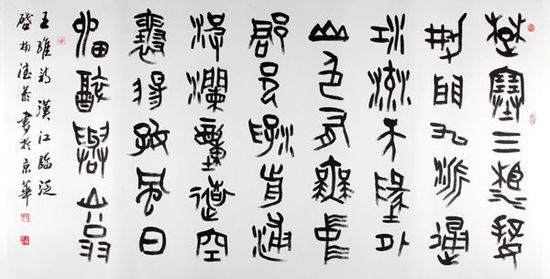 楚塞三湘接
荊門九派通
江流天地外
山色有無中
郡邑浮前浦
波瀾動遠空
襄陽好風日
留醉與山翁
王維詩漢江臨泛
書於京華